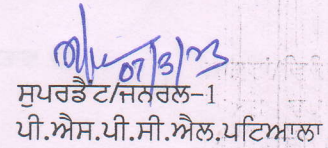 07/3/23
ਸੁਪਰਡੈਂਟ/ਜਨਰਲ-1
ਪੀ.ਐਸ.ਪੀ.ਸੀ.ਐਲ.ਪਟਿਆਲਾ